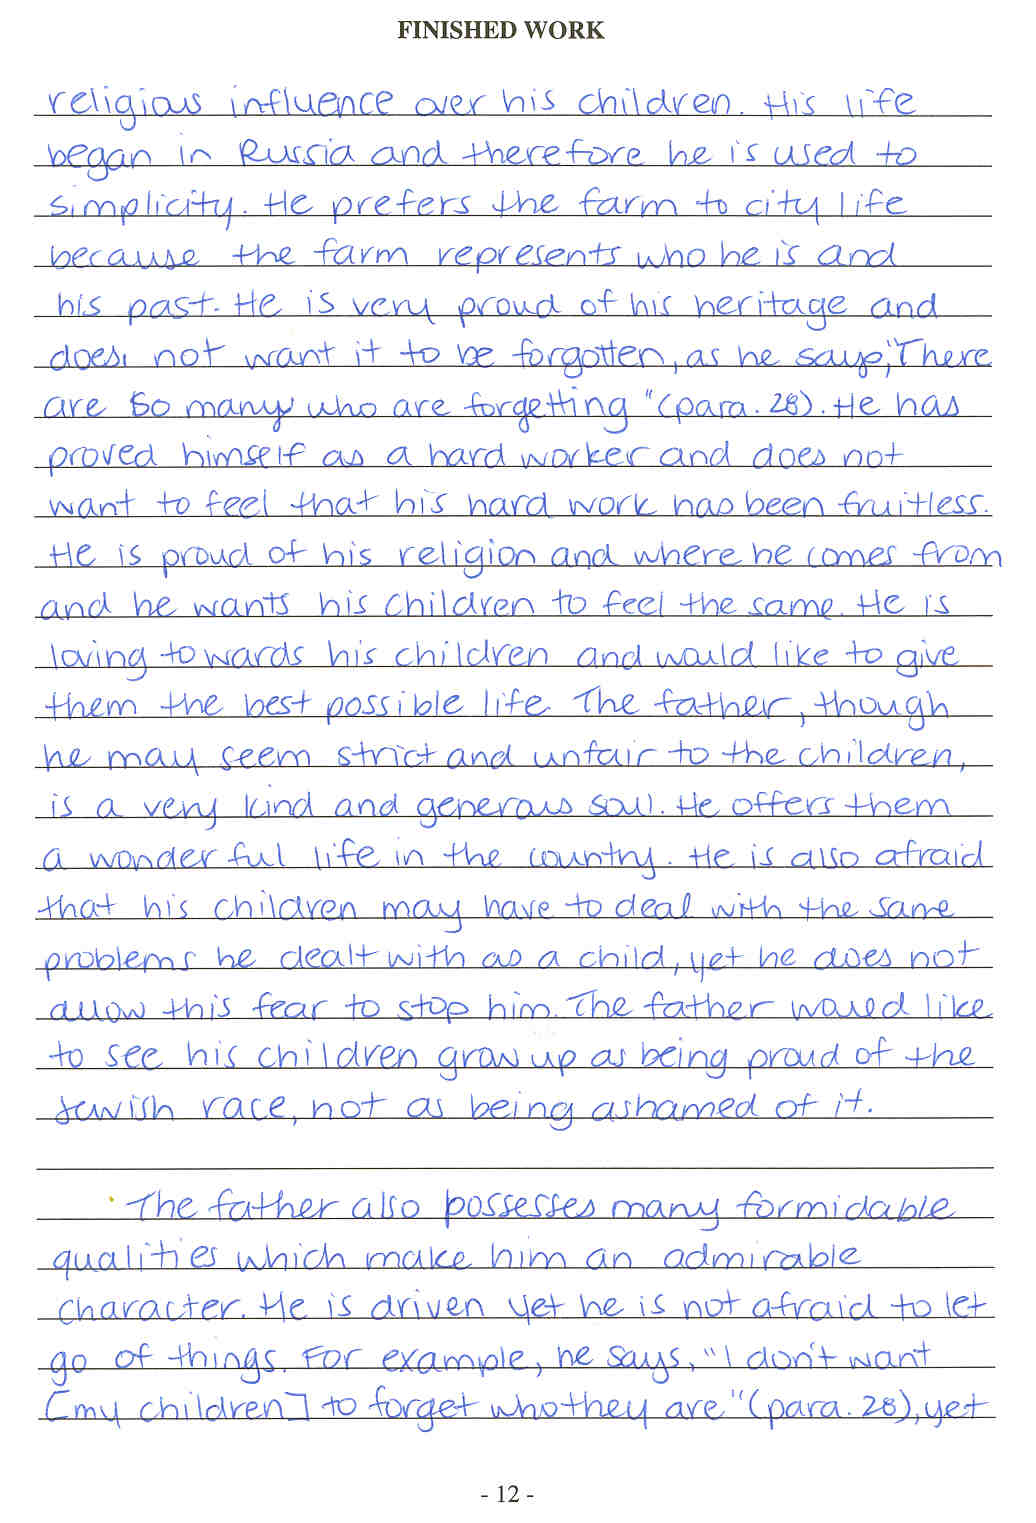 FINISHED WORK
religious influence over his children. His life
began in Russia and therefore he is used to
simplicity. He prefers the farm to city life
because the farm represents who he is and
his past. He is very proud of his heritage and
does not want it to be forgotten, as he says, "There
are so many who are forgetting" (para. 28). He has
proved himself as a hard worker and does not
want to feel that his hard work has been fruitless.
He is proud of his religion and where he comes from
and he wants his children to feel the same. He is
loving towards his children and would like to give
them the best possible life. The father, though
he may seem strict and unfair to the children,
is a very kind and generous soul. He offers them
a wonderful life in the country. He is also afraid
that his children may have to deal with the same
problems he dealt with as a child, yet he does not
allow this fear to stop him. The father would like
to see his children grow up as being proud of the
Jewish race, not as being ashamed of it.
The father also possesses many formidable
qualities which make him an admirable
character. He is driven yet he is not afraid to let
go of things. For example, he says, "I don't want
[my children] to forget who they are" (para. 28), yet
- 12 -